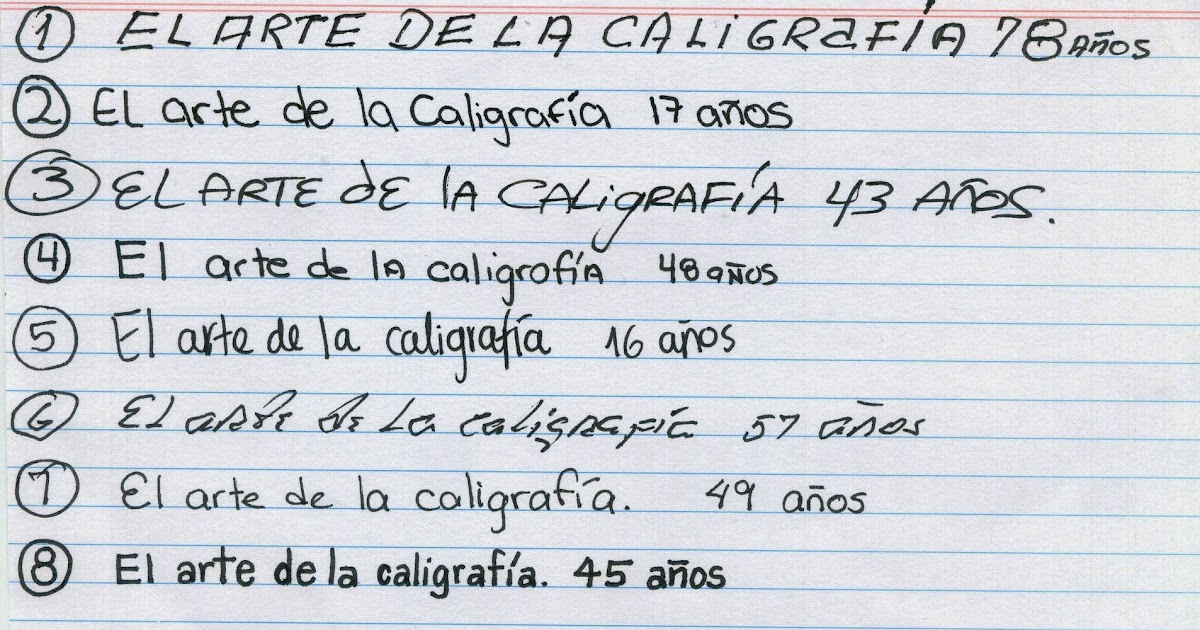 ① EL ARTE DE LA CALiGRaFíA 78 AÑOS
② EL arte de la Caligrafía 17 años
③ EL ARTE dE lA CALigRAFíA 43 AÑOS.
④ El arte de lA caligrofíA 48 aÑOS
⑤ El arte de la caligrafía 16 años
⑥ El arte de La caligrafía 57 años
⑦ El arte de la caligrafía. 49 años
⑧ El arte de la caligrafía. 45 años